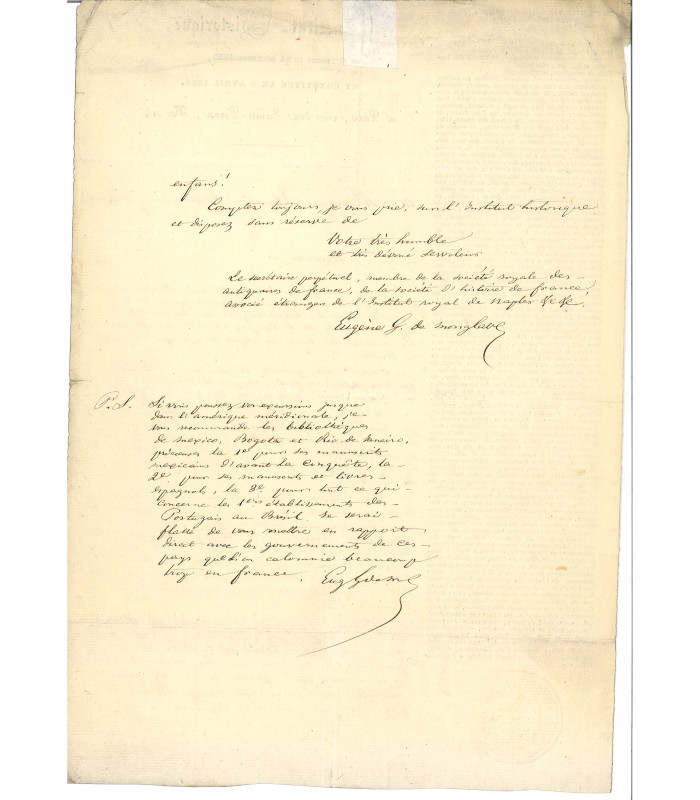 enfans!
Comptez toujours, je vous prie, sur l'Institut historique
et disposez sans réserve de
Votre très humble
et très dévoué serviteur
Le secrétaire perpétuel, membre de la société royale des
antiquaires de france, de la société d'histoire de france,
associé étranger de l'Institut royal de Naples &c &c.
Eugène G. de Monglave
P.S. Si vous poussez vos excursions jusque
dans l'amérique méridionale, je
vous recommande les bibliothèques
de Mexico, Bogota et Rio de Janeiro,
précieuses la 1e pour ses manuscrits
mexicains d'avant la Conquête, la
2e pour ses manuscrits et livres
espagnols, la 3e pour tout ce qui
concerne les 1ers établissements des
Portugais au Brésil. Je serai
flatté de vous mettre en rapport
direct avec les gouvernements de ces
pays que l'on calomnie beaucoup
trop en france.
Eug G de M